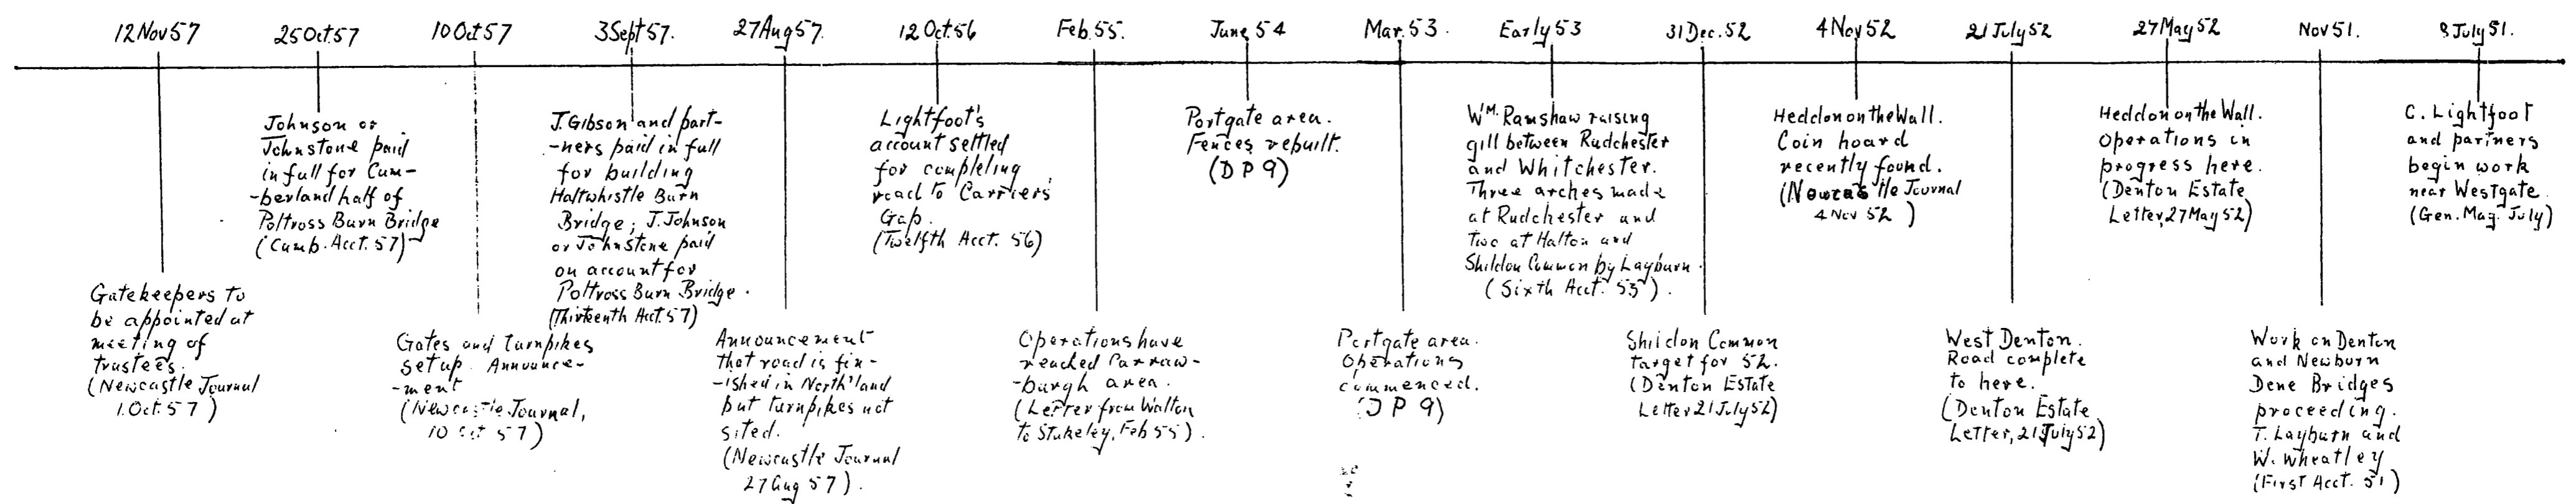 12 Nov 57
25 Oct. 57
10 Oct 57
3 Sept 57.
27 Aug 57.
12 Oct. 56
Feb. 55.
June 54
Mar. 53.
Early 53
31 Dec. 52
4 Nov 52
21 July 52
27 May 52
Nov 51.
8 July 51.
Gatekeepers to
be appointed at
meeting of
trustees.
(Newcastle Journal
1. Oct. 57)
Johnson or
Johnstone paid
in full for Cum-
-berland half of
Poltross Burn Bridge
(Cumb. Acct. 57)
Gates and turnpikes
set up. Announce-
-ment
(Newcastle Journal,
10 Oct 57)
J. Gibson and part-
-ners paid in full
for building
Haltwhistle Burn
Bridge; J. Johnson
or Johnstone paid
on account for
Poltross Burn Bridge.
(Thirteenth Acct. 57)
Announcement
that road is fin-
-ished in North'land
but turnpikes not
sited.
(Newcastle Journal
27 Aug 57).
Lightfoot's
account settled
for completing
road to Carriers
Gap.
(Twelfth Acct. 56)
Operations have
reached Carraw-
-burgh area.
(Letter from Walton
to Stukeley, Feb 55).
Portgate area.
Fences rebuilt.
(D P 9)
Portgate area.
Operations
commenced.
(D P 9)
Wm. Ramshaw raising
gill between Rudchester
and Whitchester.
Three arches made
at Rudchester and
two at Halton and
Shildon Common by Layburn.
(Sixth Acct. 53).
Shildon Common
target for 52.
(Denton Estate
Letter 21 July 52)
Heddon on the Wall.
Coin hoard
recently found.
(Newcastle Journal
4 Nov 52)
West Denton.
Road complete
to here.
(Denton Estate
Letter, 21 July 52)
Heddon on the Wall.
Operations in
progress here.
(Denton Estate
Letter, 27 May 52)
Work on Denton
and Newburn
Dene Bridges
proceeding.
T. Layburn and
W. Wheatley
(First Acct. 51)
C. Lightfoot
and partners
begin work
near Westgate.
(Gen. Mag. July)